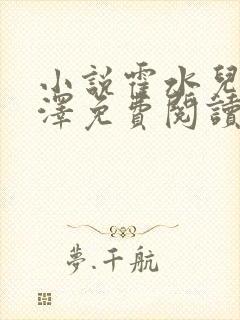 小說霍水兒
澤免費閱讀
夢.千航